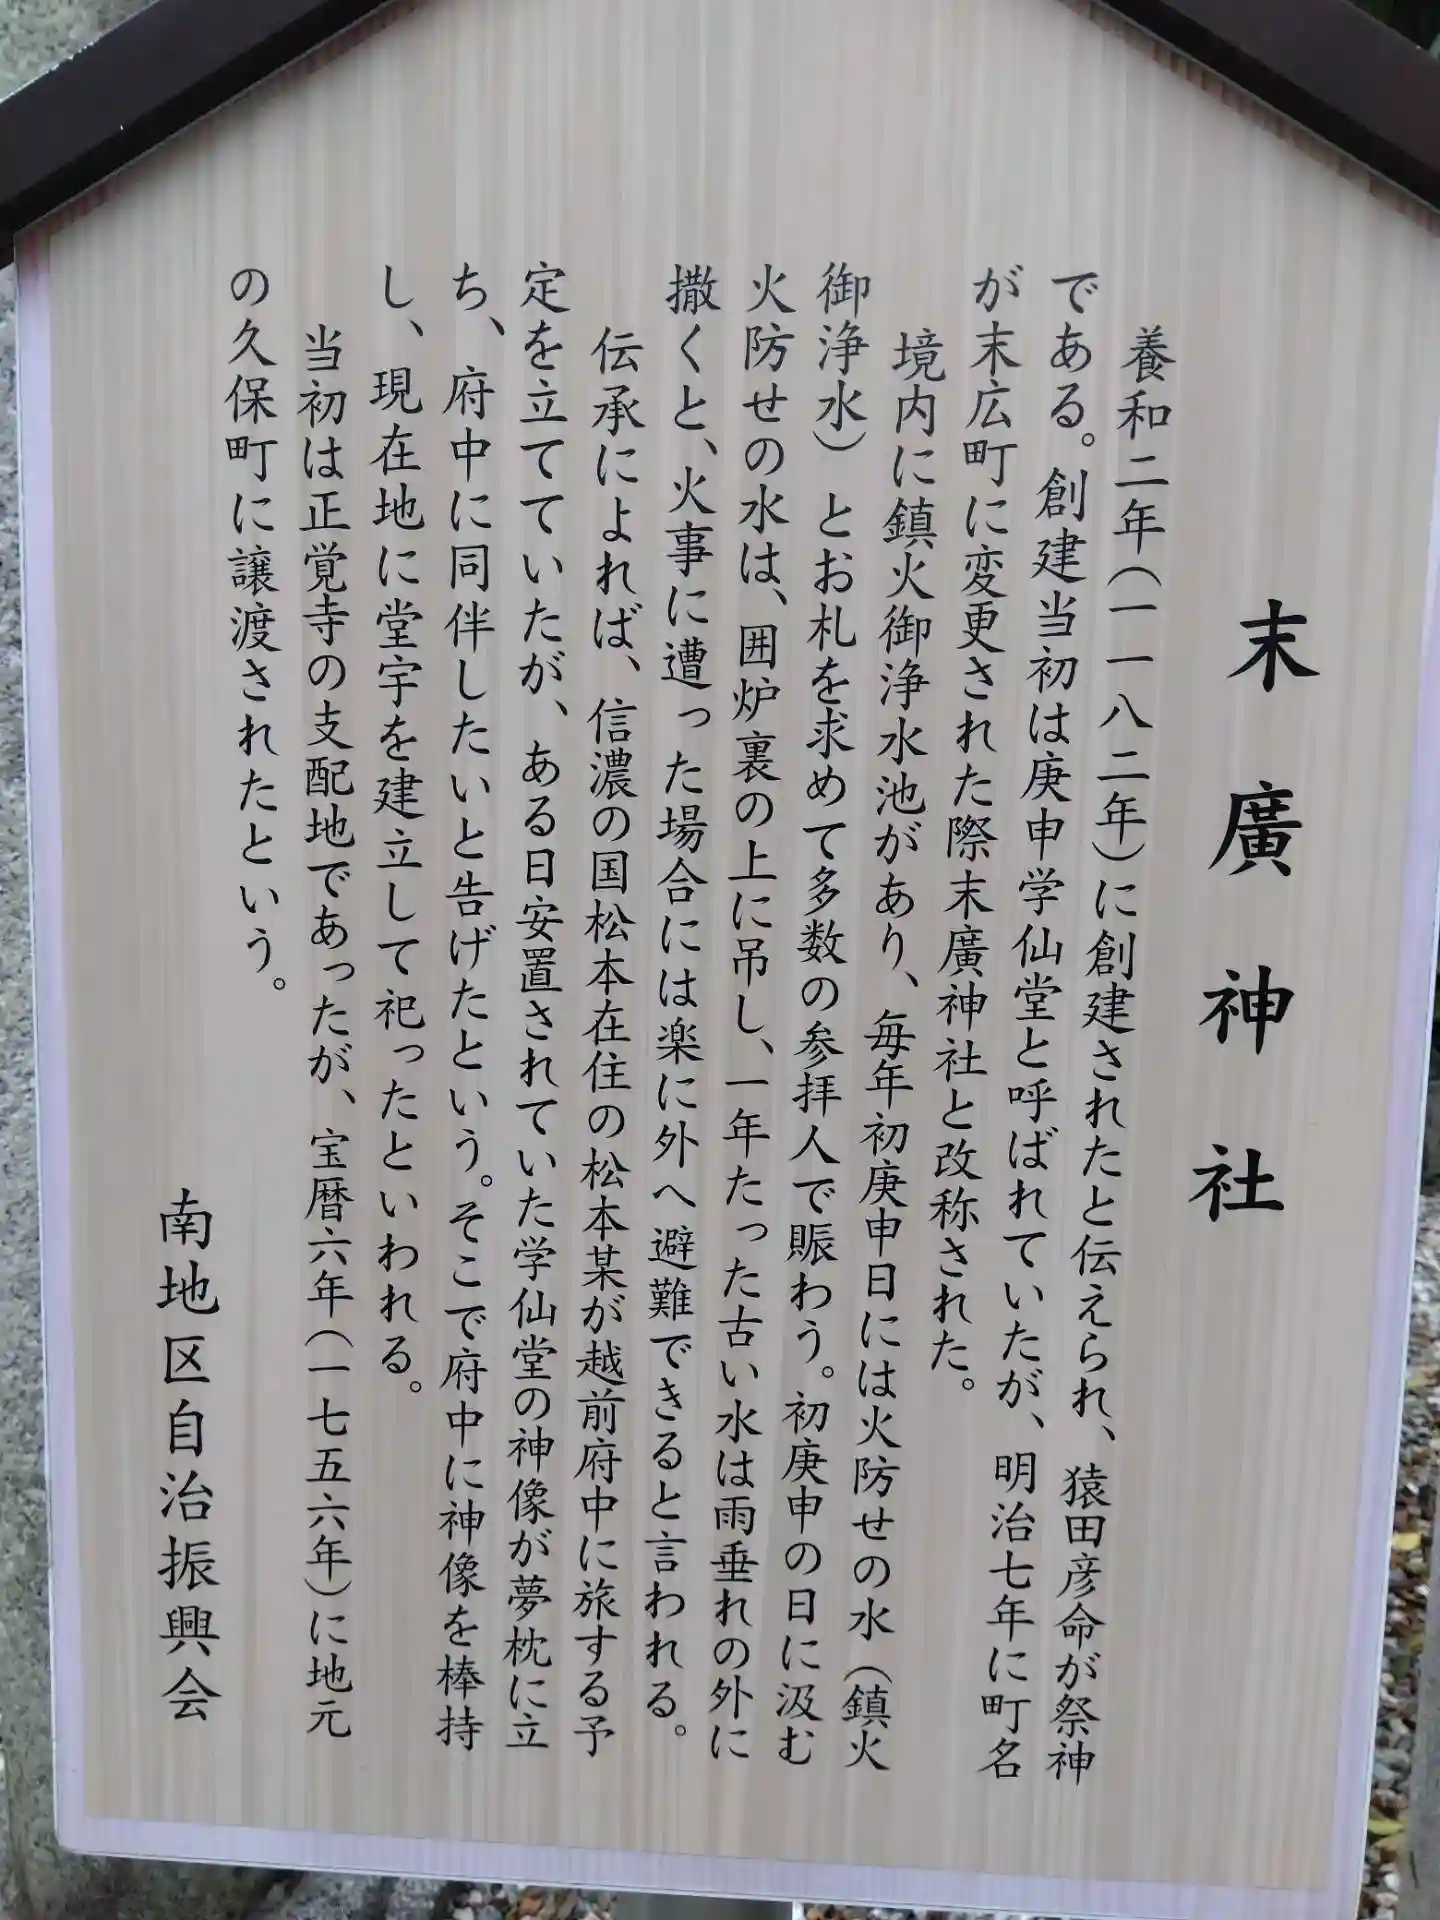 末廣神社
養和二年(一一八二年)に創建されたと伝えられ、猿田彦命が祭神
である。創建当初は庚申学仙堂と呼ばれていたが、明治七年に町名
が末広町に変更された際末廣神社と改称された。
境内に鎮火御浄水池があり、毎年初庚申日には火防せの水(鎮火
御浄水)とお札を求めて多数の参拝人で賑わう。初庚申の日に汲む
火防せの水は、囲炉裏の上に吊し、一年たった古い水は雨垂れの外に
撒くと、火事に遭った場合には楽に外へ避難できると言われる。
伝承によれば、信濃の国松本在住の松本某が越前府中に旅する予
定を立てていたが、ある日安置されていた学仙堂の神像が夢枕に立
ち、府中に同伴したいと告げたという。そこで府中に神像を棒持
し、現在地に堂宇を建立して祀ったといわれる。
当初は正覚寺の支配地であったが、宝暦六年(一七五六年)に地元
の久保町に譲渡されたという。
南地区自治振興会